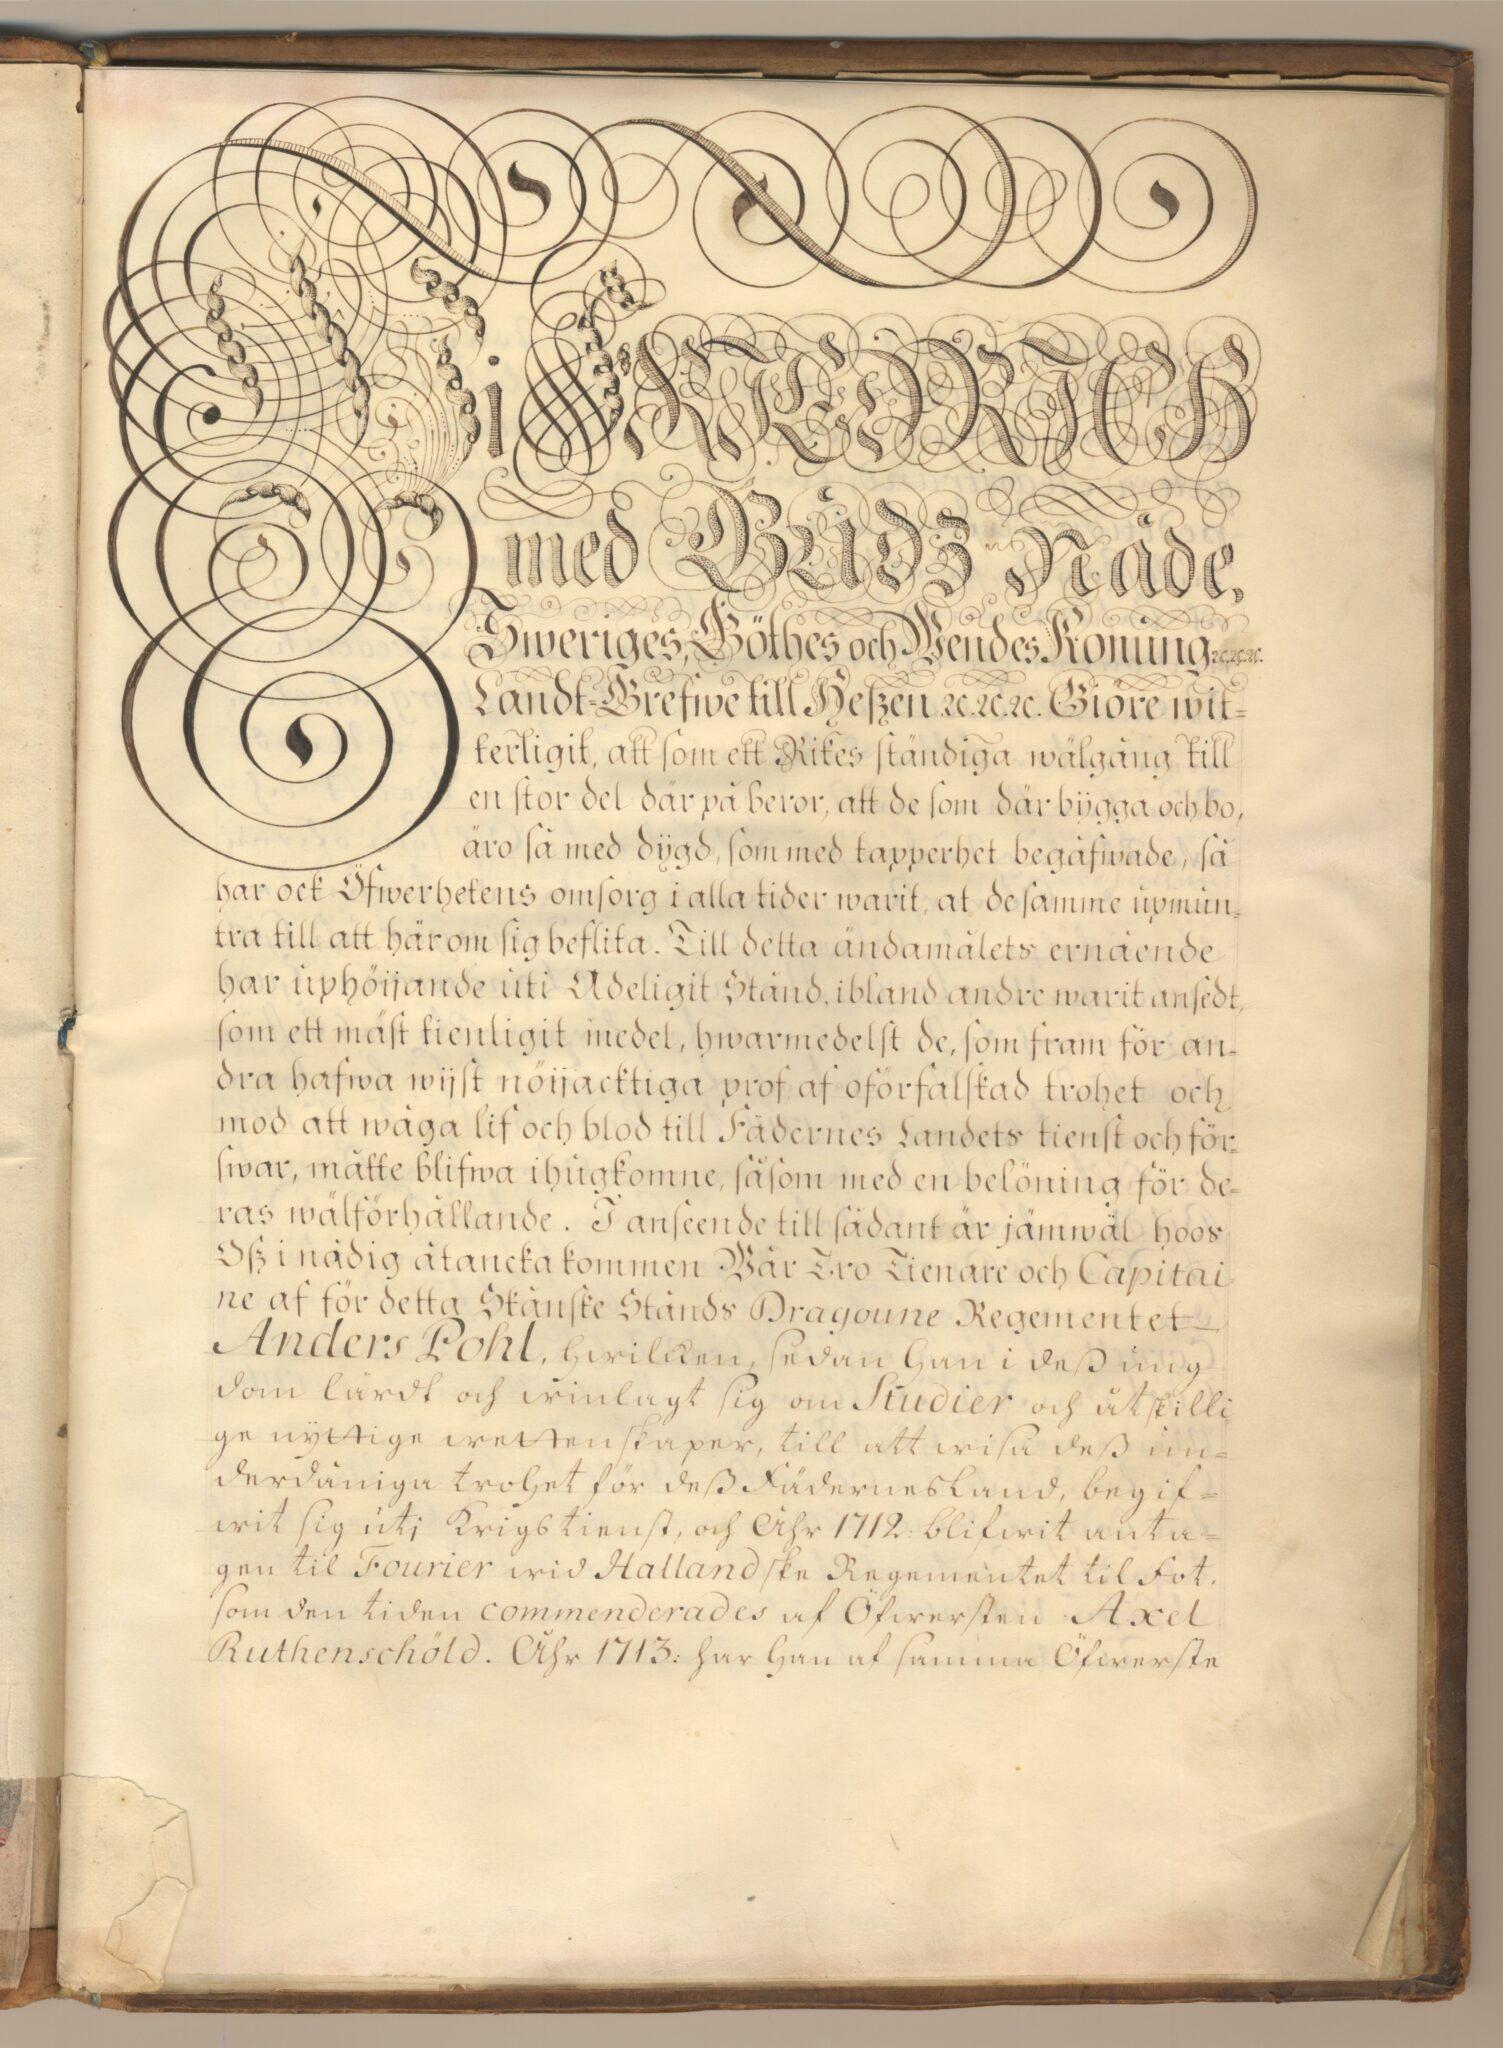 Wi FRIEDRICH
med Gudz Nåde,
Sweriges, Göthes och Wendes Konung, ꝛc. ꝛc. ꝛc.
Landt-Grefwe till Heßen ꝛc. ꝛc. ꝛc. Giöre wit-
terligit, att som ett Rikes ständiga wälgång till
en stor del där på beror, att de som där bÿgga och bo,
äro så med dÿgd, som med tapperhet begåfwade, så
har ock Öfwerhetens omsorg i alla tider warit, at de samme upmun-
tra till att här om sig beflita. Till detta ändamålets ernående
har uphöijande uti Adeligit Stånd, ibland andre warit ansedt,
som ett mäst tienligit medel, hwarmedelst de, som fram för an-
dra hafwa wijst nöijacktiga prof af oförfalskad trohet och
mod att wåga lif och blod till Fädernes Landets tienst och för-
swar, måtte blifwa ihugkomne, såsom med en belöning för de-
ras wälförhållande. I anseende till sådant är jämwäl hoos
Oß i nådig åtancka kommen Wår Tro Tienare och Capitai
ne af för detta Skånske Stånds Dragoune Regementet
Anders Pohl, hwilcken, sedan han i deß ung
dom lärdt och winlagt sig om Studier och åtskilli
ge nyttige wettenskaper, till att wisa deß un-
derdåniga trohet för deß Fädernesland, begif-
wit sig utj Krigstienst, och Åhr 1712: blifwit anta-
gen til Fourier wid Hallandske Regementet til Fot.
som den tiden commenderades af Öfwersten Axel
Ruthenschöld. Åhr 1713: har han af samma Öfwerste